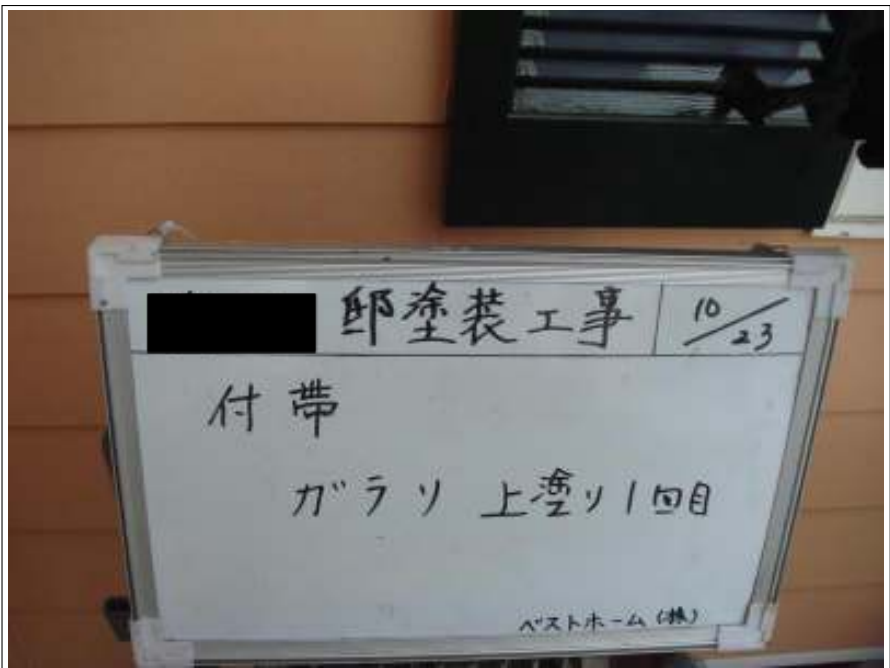 邸塗装工事 10/23
付帯
ガラリ 上塗り1回目
ベストホーム(株)